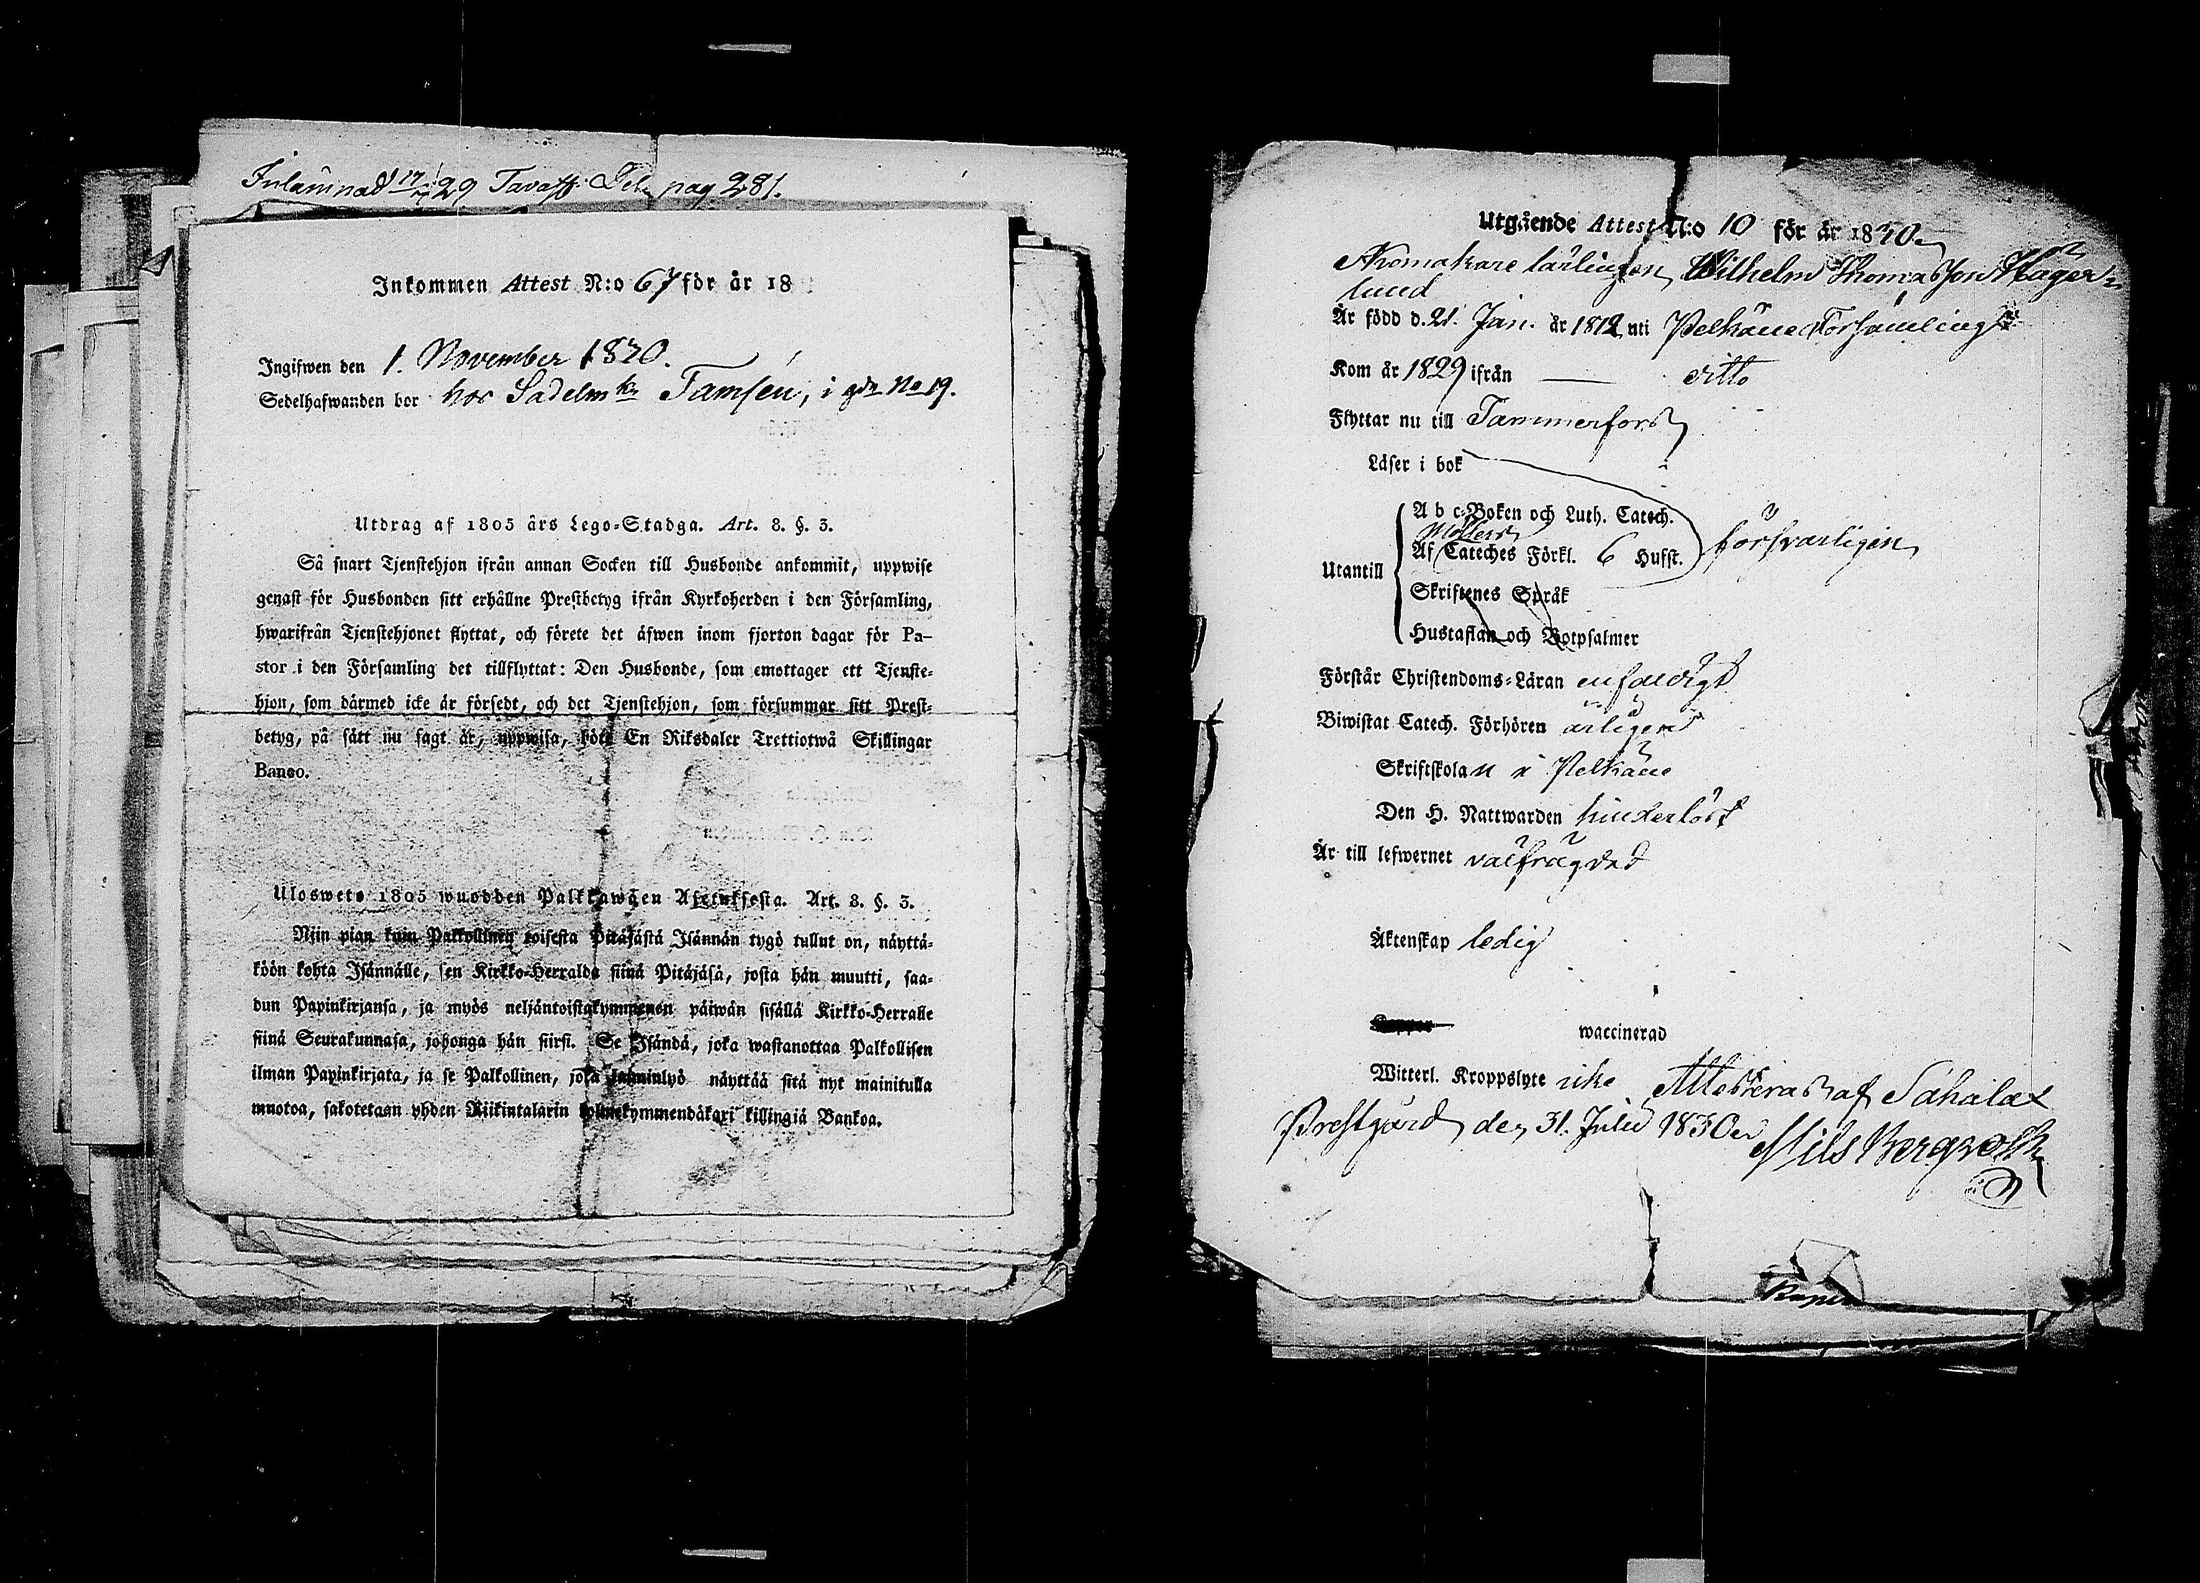 Inlämnad 17/ 29 Tavast. Del. pag. 281.
Inkommen Attest N:o 67 för år 18
Ingifwen den 1. November 1830.
Sedelhafwanden bor hos Sadelmkr Tamsén, i gdn No 19.
Utdrag af 1805 års Lego-Stadga. Art. 8. §. 3.
Så snart Tjenstehjon ifrån annan Socken till Husbonde ankommit, uppwise
genast för Husbonden sitt erhållne Prestbetyg ifrån Kyrkoherden i den Församling,
hwarifrån Tjenstehjonet flyttat, och förete det äfwen inom fjorton dagar för Pa-
stor i den Församling det tillflyttat: Den Husbonde, som emottager ett Tjenste-
hjon, som därmed icke är försedt, och det Tjenstehjon, som försummar sitt Prest-
betyg, på sätt nu sagt är, uppwisa, böte En Riksdaler Trettiotwå Skillingar
Banco.
Ulosweto 1805 wuodden Palkkawäen Asetuksesta. Art. 8. §. 3.
Niin pian kuin Palkollinen toisesta Pitäjästä Isännän tygö tullut on, näyttä-
köön kohta Isännälle, sen Kirkko-Herralda siinä Pitäjäsä, josta hän muutti, saa-
dun Papinkirjansa, ja myös neljäntoistakymmenen päiwän sisällä Kirkko-Herralle
siinä Seurakunnasa, johonga hän siirsi. Se Isändä, joka wastanottaa Palkollisen
ilman Papinkirjata, ja se Palkollinen, joka laiminlyö näyttää sitä nyt mainitulla
muotoa, sakotetaan yhden Riikintalarin kolmekymmendäkaxi killingiä Bankoa.
Utgående Attest N:o 10 för år 1830.
Skomakare lärlingen Wilhelm Thomasson Hager-
lund
Är född d. 21. Jan. år 1812 uti Pelkäne Församling
Kom år 1829 ifrån — ditto
Flyttar nu till Tammerfors
Läser i bok
A b c-Boken och Luth. Catech.
Möllers
Af Cateches Förkl. 6 Hufst. försvarligen
Utantill
Skriftenes Språk
Hustaflan och Botpsalmer
Förstår Christendoms-Läran enfaldigt
Biwistat Catech. Förhören årligen
Skriftskolan i Pelkäne
Den H. Nattwarden hinderlöst
Är till lefwernet välfrägdad
Äktenskap ledig
waccinerad
Witterl. Kroppslyte icke Attesteras af Sahalax
Prestgård den 31. Julii 1830
Nils Bergroth